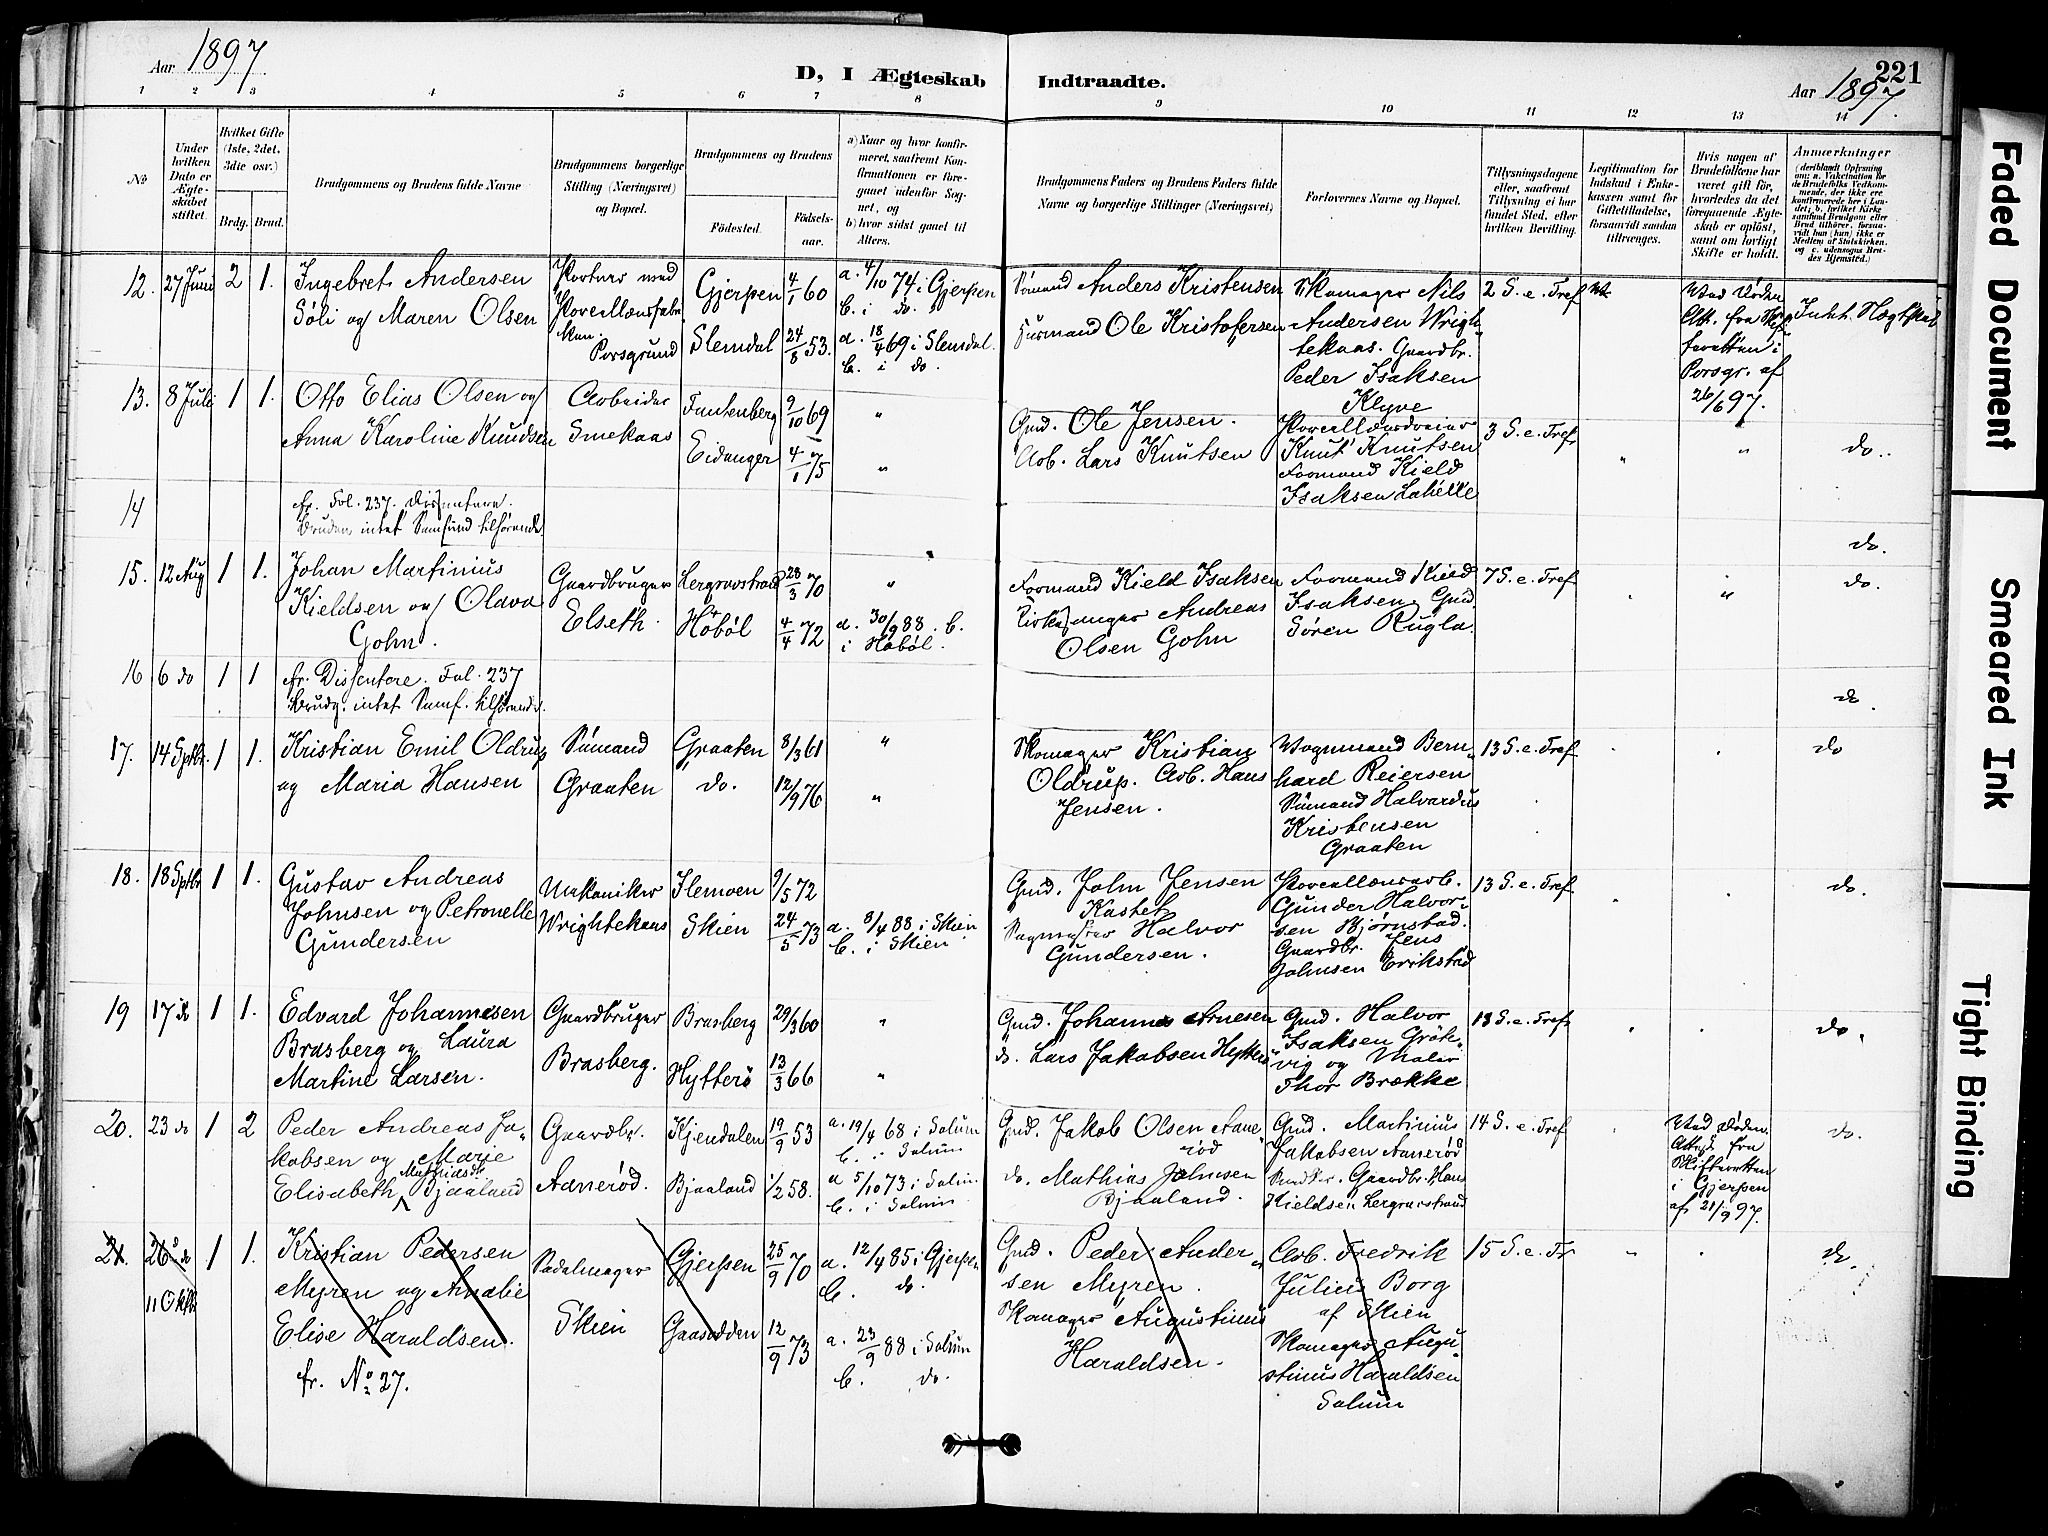 Aar 1897.
D, I Ægteskab Indtraadte.
221
Aar 1897.
1 2 3 4 5 6 7 8 9 10 11 12 13 14
No
Under hvilken Dato er Ægteskabet stiftet.
Hvilket Gifte (1ste, 2det, 3die osv.)
Brdg. Brud.
Brudgommens og Brudens fulde Navne
Brudgommens borgerlige Stilling (Næringsvei) og Bopæl.
Brudgommens og Brudens
Födested.
Födsels-aar.
a) Naar og hvor konfirmeret, saafremt Konfirmationen er foregaaet udenfor Sognet, og
b) hvor sidst gaaet til Alters.
Brudgommens Faders og Brudens Faders fulde Navne og borgerlige Stillinger (Næringsvei)
Forlovernes Navne og Bopæl.
Tillysningsdagene eller, saafremt Tillysning ei har fundet Sted, efter hvilken Bevilling.
Legitimation for Indskud i Enkekassen samt for Giftetilladelse, forsaavidt saadan tiltrænges.
Hvis nogen af Brudefolkene har været gift før, hvorledes da det foregaaende Ægteskab er opløst, samt om lovligt Skifte er holdt.
Anmærkninger
(deriblandt Oplysning om: a. Vakcination for de Brudefolks Vedkommende, der ikke ere konfirmerede her i Landet, b. hvilket Kirkesamfund Brudgom eller Brud tilhører, forsaavidt han (hun) ikke er Medlem af Statskirken, og c. udensogns Brudes Hjemsted.)
12. 27 Juni 2 1. Ingebret Andersen
Søli og Maren Olsen
Portner ved
Porcellænsfabrikken
Porsgrund
Gjerpen 4/1 60
Slemdal 24/8 53.
a. 4/10 74 i Gjerpen
b. i do.
a. 18/4 69 i Slemdal.
b. i do.
Sømand Anders Kristensen
Husmand Ole Kristofersen
Skomager Nils
Andersen Wrigh
tekaas. Gaardbr.
Peder Isaksen
Klyve
2 S. e. Tref
Ved Døden
Att. fra Skif
teretten i
Porsgr. af
26/6 97.
13. 8 Juli 1 1. Otto Elias Olsen og
Anna Karoline Knudsen
Arbeider
Smekaas
Fantenberg 9/10 69 "
Eidanger 4/1 75 "
Gmd. Ole Jensen.
Arb. Lars Knutsen
Porcellænsdreier
Knut Knutsen
Formand Kield
Isaksen Lahelle
3 S. e. Tref " " do.
14
fr. Fol. 237. Dissentere.
Bruden intet Samfund tilhørende
do.
15. 12 Aug 1 1. Johan Martinius
Kieldsen og Olava
Gohn.
Gaardbruger
Elseth.
Lergravstrand 28/3 70 "
Høbøl 4/4 72
a. 30/9 88. b.
i Høbøl.
Formand Kield Isaksen
Kirkesanger Andreas
Olsen Gohn
Formand Kield
Isaksen. Gmd.
Sören Rugla.
7 S. e. Tref " do
16 6 do 1 1 fr. Dissentere. Fol. 237
Brudg. intet Samf. tilhørende.
do
17. 14 Sptbr. 1 1. Kristian Emil Oldrup
og Maria Hansen
Sømand
Graaten
Graaten 8/3 61 "
do. 12/9 76 "
Skomager Kristian
Oldrup. Arb. Hans
Jensen.
Vognmand Bern
hard Reiersen
Sømand Halvardus
Kristensen
Graaten
13 S. e. Tref do
18. 18 Sptbr 1 1. Gustav Andreas
Johnsen og Petronelle
Gundersen
Mekaniker
Wrightekaas
Flemoen 9/5 72
Skien 24/5 73
a. 8/4 88 i Skien
b. i Skien
Gmd. John Jensen
Kastet
Sagmester Halvor
Gundersen.
Porcellænsarb.
Gunder Halvor
sen Bjørnstad.
Gaardbr. Jens
Johnsen Erikstad
13 S. e. Tref do.
19 17 do 1 1. Edvard Johannesen
Brasberg og Laura
Martine Larsen.
Gaardbruger
Brasberg.
Brasberg 29/3 60 "
Hytterö 13/3 66 "
Gmd. Johannes Arnesen
do. Lars Jakobsen Hytterö
Gmd. Halvor
Isaksen Gröte
vig og Maler
Thor Brække
13 S. e. Tref do.
20. 23 do 1 2 Peder Andreas Ja
kobsen og Marie
Elisabeth Mathiasdtr Bjaaland
Gaardbr.
Aanerød.
Kjendalen 19/9 53
Bjaaland 1/2 58.
a. 19/4 68 i Solum
b. i Solum
a 5/10 73 i Solum
b. i Solum
Gmd. Jakob Olsen Aane
rød
do. Mathias Johnsen
Bjaaland.
Gmd. Martinius
Jakobsen Aanerød
Gaardbr. Hans
Kieldsen Lergravstrand
14 S. e. Tref
Ved Døden.
Attest fra
Skifteretten
i Gjerpen
af 21/9 97.
do.
21. 26 do 1 1. Kristian Pedersen
11 Oktbr
Myren og Amalie
Elise Haraldsen.
fr. No 27.
Sadelmager
Skien
Gjerpen 25/9 70
Gaasodden 12/9 73
a. 12/4 85 i Gjerpen
b. do.
a. 23/9 88 i Solum
b. do.
Gmd. Peder Ander
sen Myren.
Skomager Augustinus
Haraldsen.
Arb. Fredrik
Julius Borg
af Skien
Skomager Augu
stinus Haraldsen
Solum
15 S. e. Tr " do.
Faded Document
Smeared Ink
Tight Binding